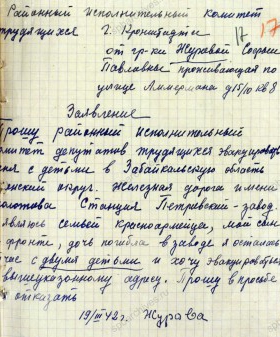 Районный исполнительный комитет
трудящихся 17 17
г. Кронштадта
от гр-ки Журовой Софьи
Павловны проживающая по
улице Аммермана д 15/10 кв 8
Заявление
Прошу районный исполнительный
комитет депутатов трудящихся эвакуировать
меня с детьми в Забайкальскую область
округ. Железная дорога имени
Молотова Станция Петривский-завод.
являюсь семьей красноармейца, мой сын
фронте, дочь погибла в заводе я осталась
с двумя детьми и хочу эвакуироваться
вышеуказанному адресу. Прошу в просьбе
отказать
19/III 42 г. Журова